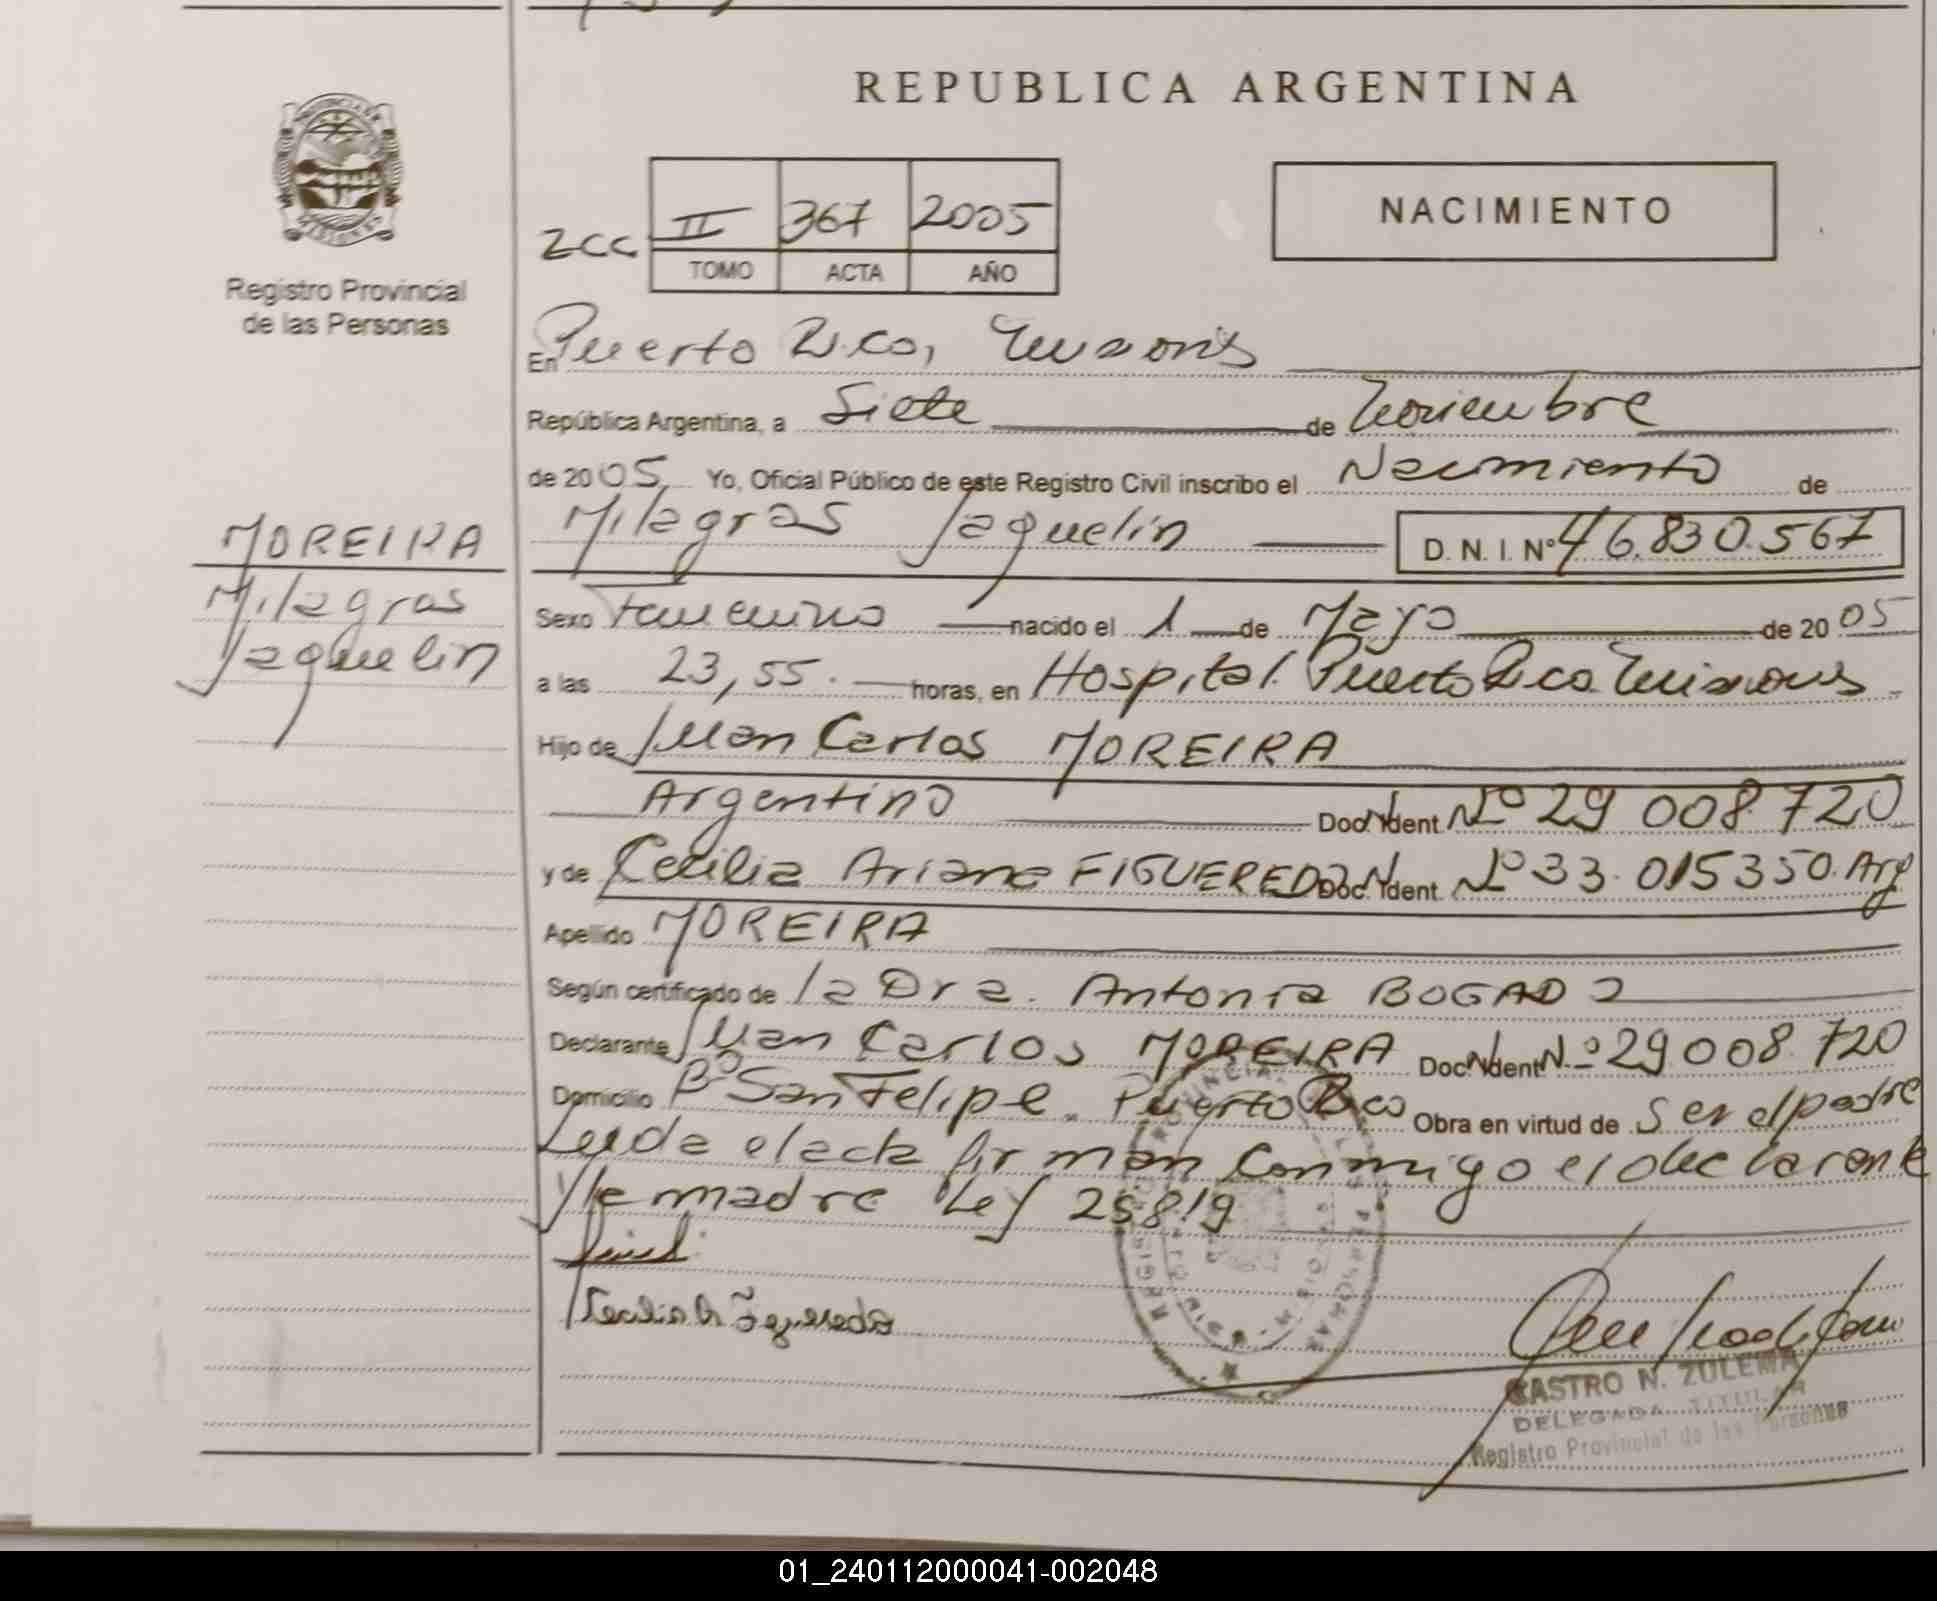 REPUBLICA ARGENTINA
NACIMIENTO
2CC II 367 2005
TOMO ACTA AÑO
Registro Provincial
de las Personas
En Puerto Rico, Misiones
República Argentina, a Siete de Noviembre
de 2005. Yo, Oficial Público de este Registro Civil inscribo el Nacimiento de
Milagros Jaquelin D. N. I. Nº 46.830.567
MOREIRA
Milagros
Jaquelin
Sexo Femenino nacido el 1 de Mayo de 2005
a las 23,55. horas, en Hospital. Puerto Rico. Misiones.
Hijo de Juan Carlos MOREIRA
Argentino Doc. Ident. Nº 29 008.720
y de Cecilia Ariana FIGUEREDO Doc. Ident. Nº 33.015350. Arg
Apellido MOREIRA
Según certificado de la Dra. Antonia BOGADO
Declarante Juan Carlos MOREIRA Doc. Ident. Nº 29 008.720
Domicilio Bº San Felipe. Puerto Rico Obra en virtud de Ser el padre
Leida el acta firman conmigo el declarante
y la madre Ley 25819
Cecilia A Figueredo
CASTRO N. ZULEMA
DELEGADA TITULAR
Registro Provincial de las Personas
01_240112000041-002048